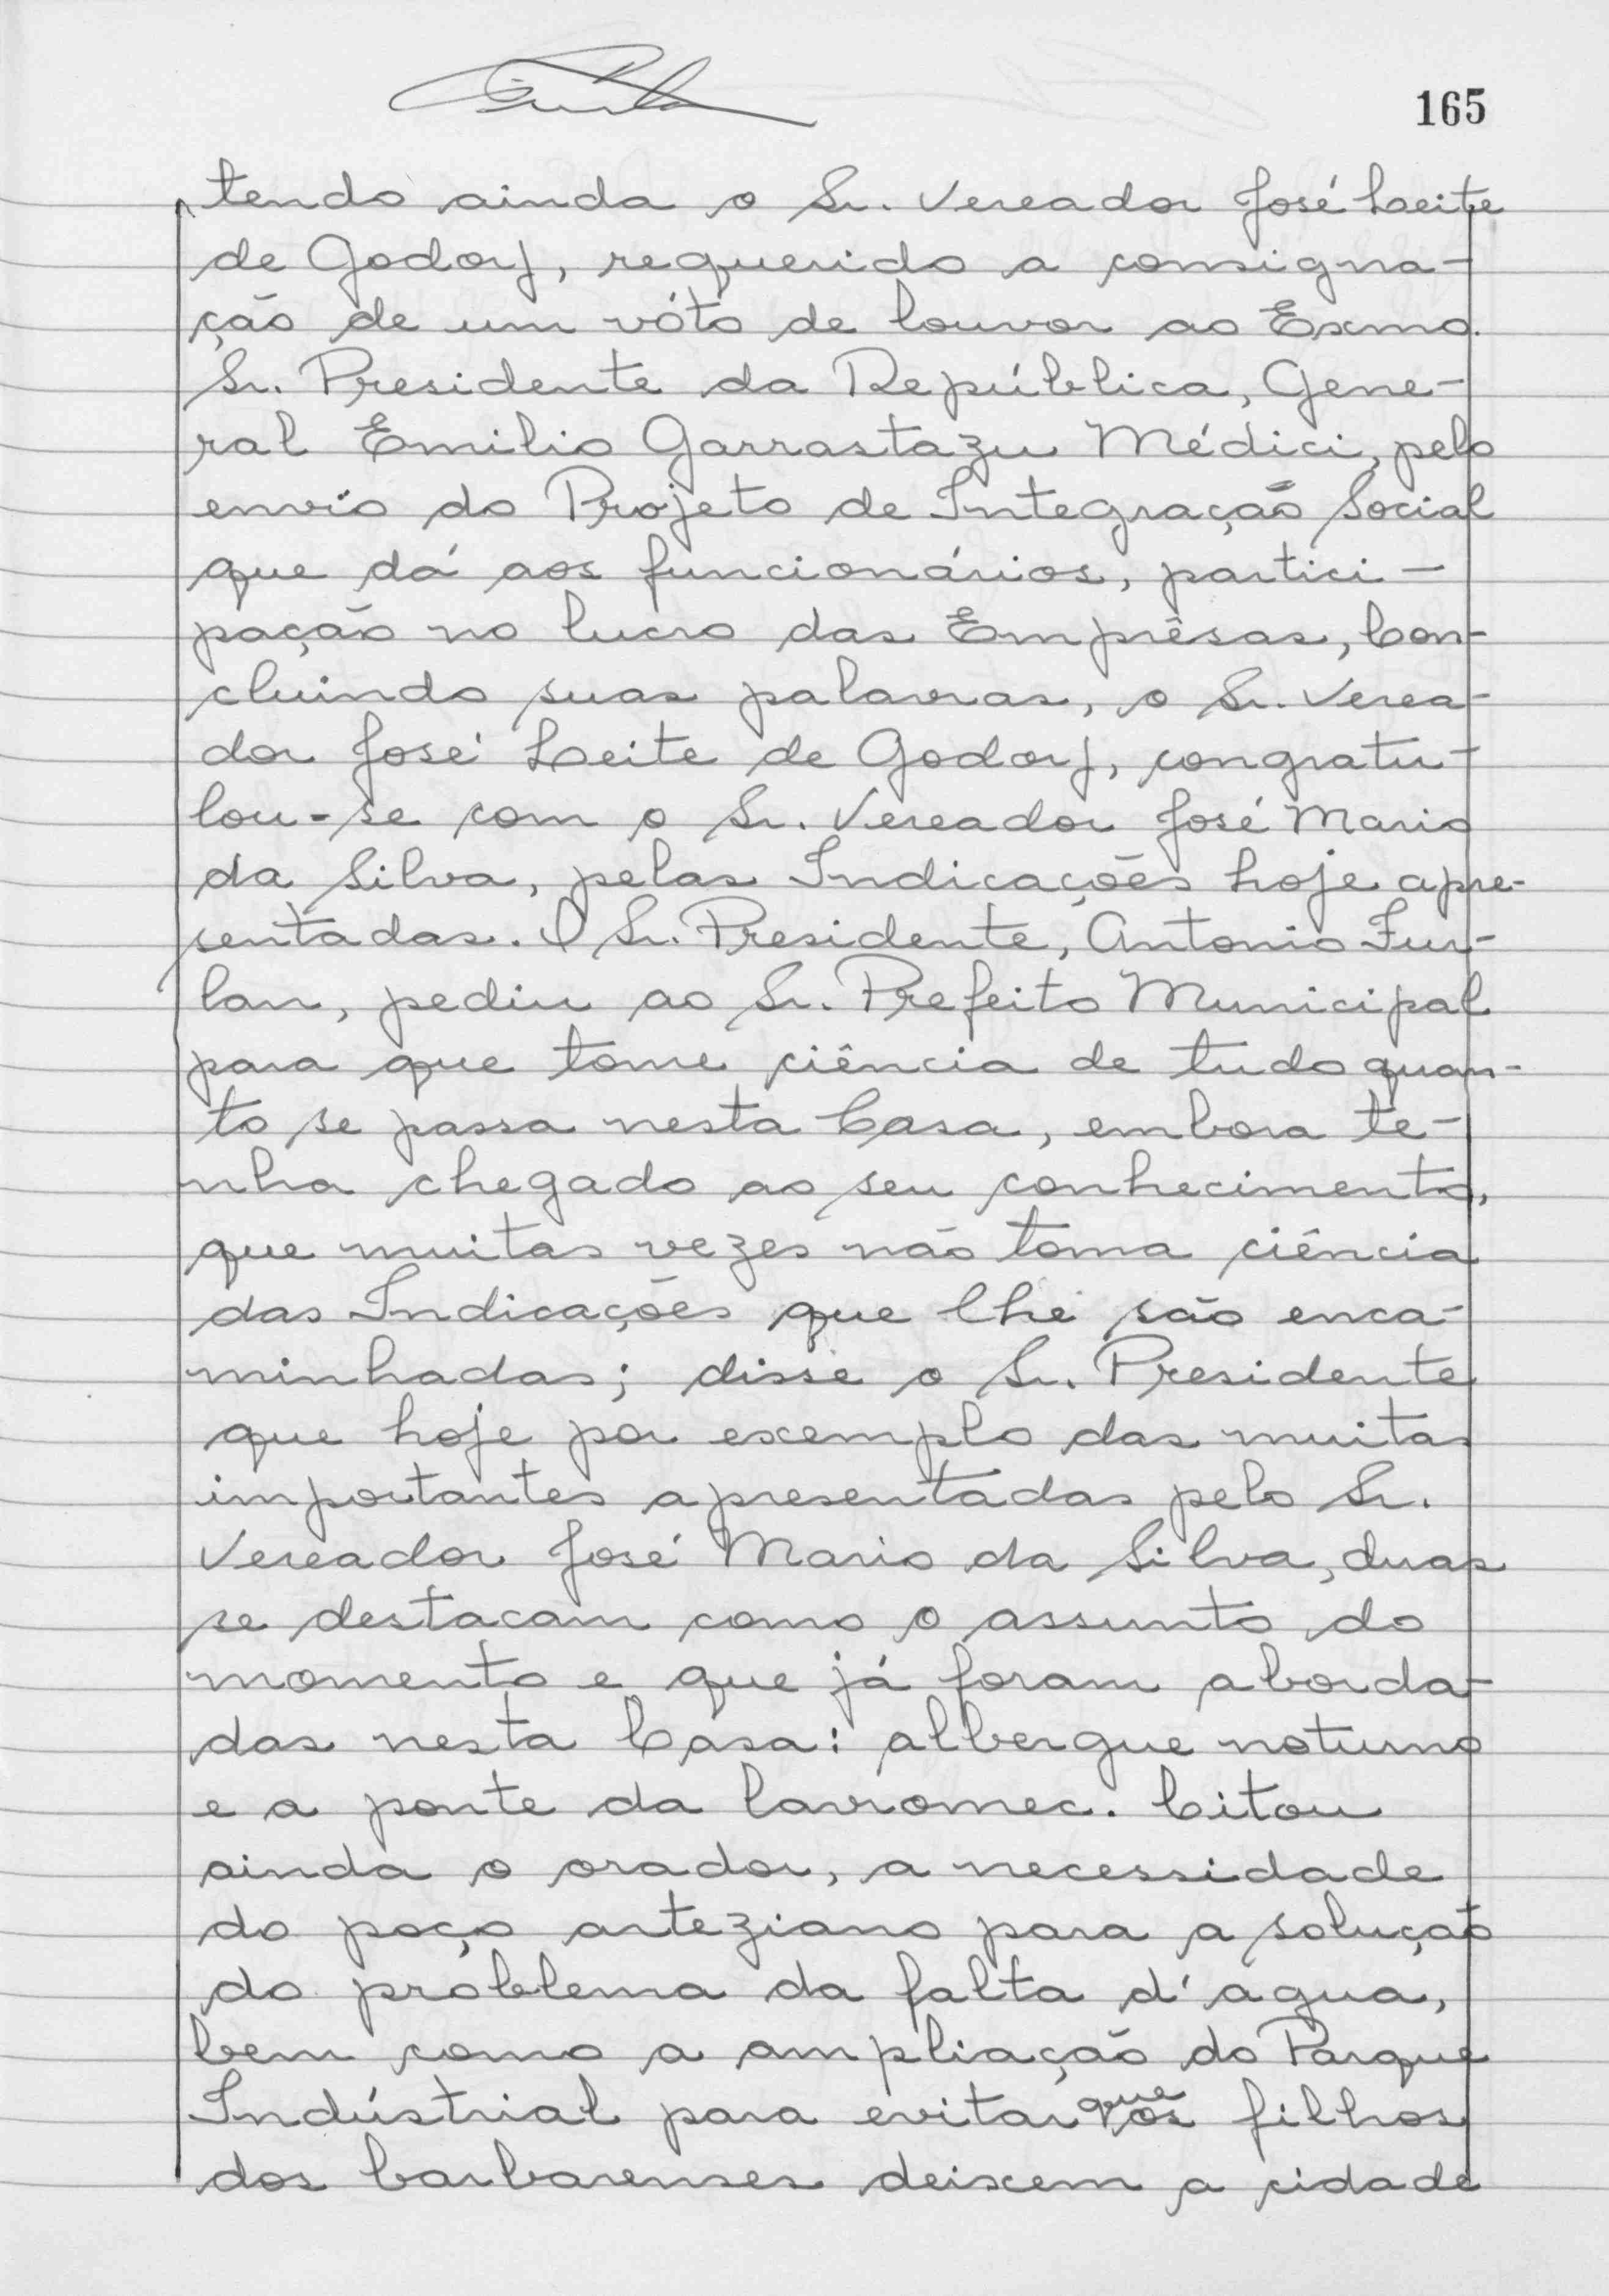 165
tendo ainda o Sr. Vereador José Leite
de Godoy, requerido a consigna-
ção de um vóto de louvor ao Exmo.
Sr. Presidente da República, Gene-
ral Emilio Garrastazu Médici, pelo
envio do Projeto de Integração Social
que dá aos funcionários, partici-
pação no lucro das Emprêsas, Con-
cluindo suas palavras, o Sr. Verea-
dor José Leite de Godoy, congratu-
lou-se com o Sr. Vereador José Mario
da Silva, pelas Indicações hoje apre-
sentadas. O Sr. Presidente, Antonio Fur-
lan, pediu ao Sr. Prefeito Municipal
para que tome ciência de tudo quan-
to se passa nesta Casa, embora te-
nha chegado ao seu conhecimento,
que muitas vezes não toma ciência
das Indicações que lhe são enca-
minhadas; disse o Sr. Presidente
que hoje por exemplo das muitas
importantes apresentadas pelo Sr.
Vereador José Mario da Silva, duas
se destacam como o assunto do
momento e que já foram aborda-
das nesta Casa: albergue noturno
e a ponte da lavromec. Citou
ainda o orador, a necessidade
do poço arteziano para a solução
do problema da falta d'agua,
bem como a ampliação do Parque
Indústrial para evitar que os filhos
dos barbarenses deixem a cidade